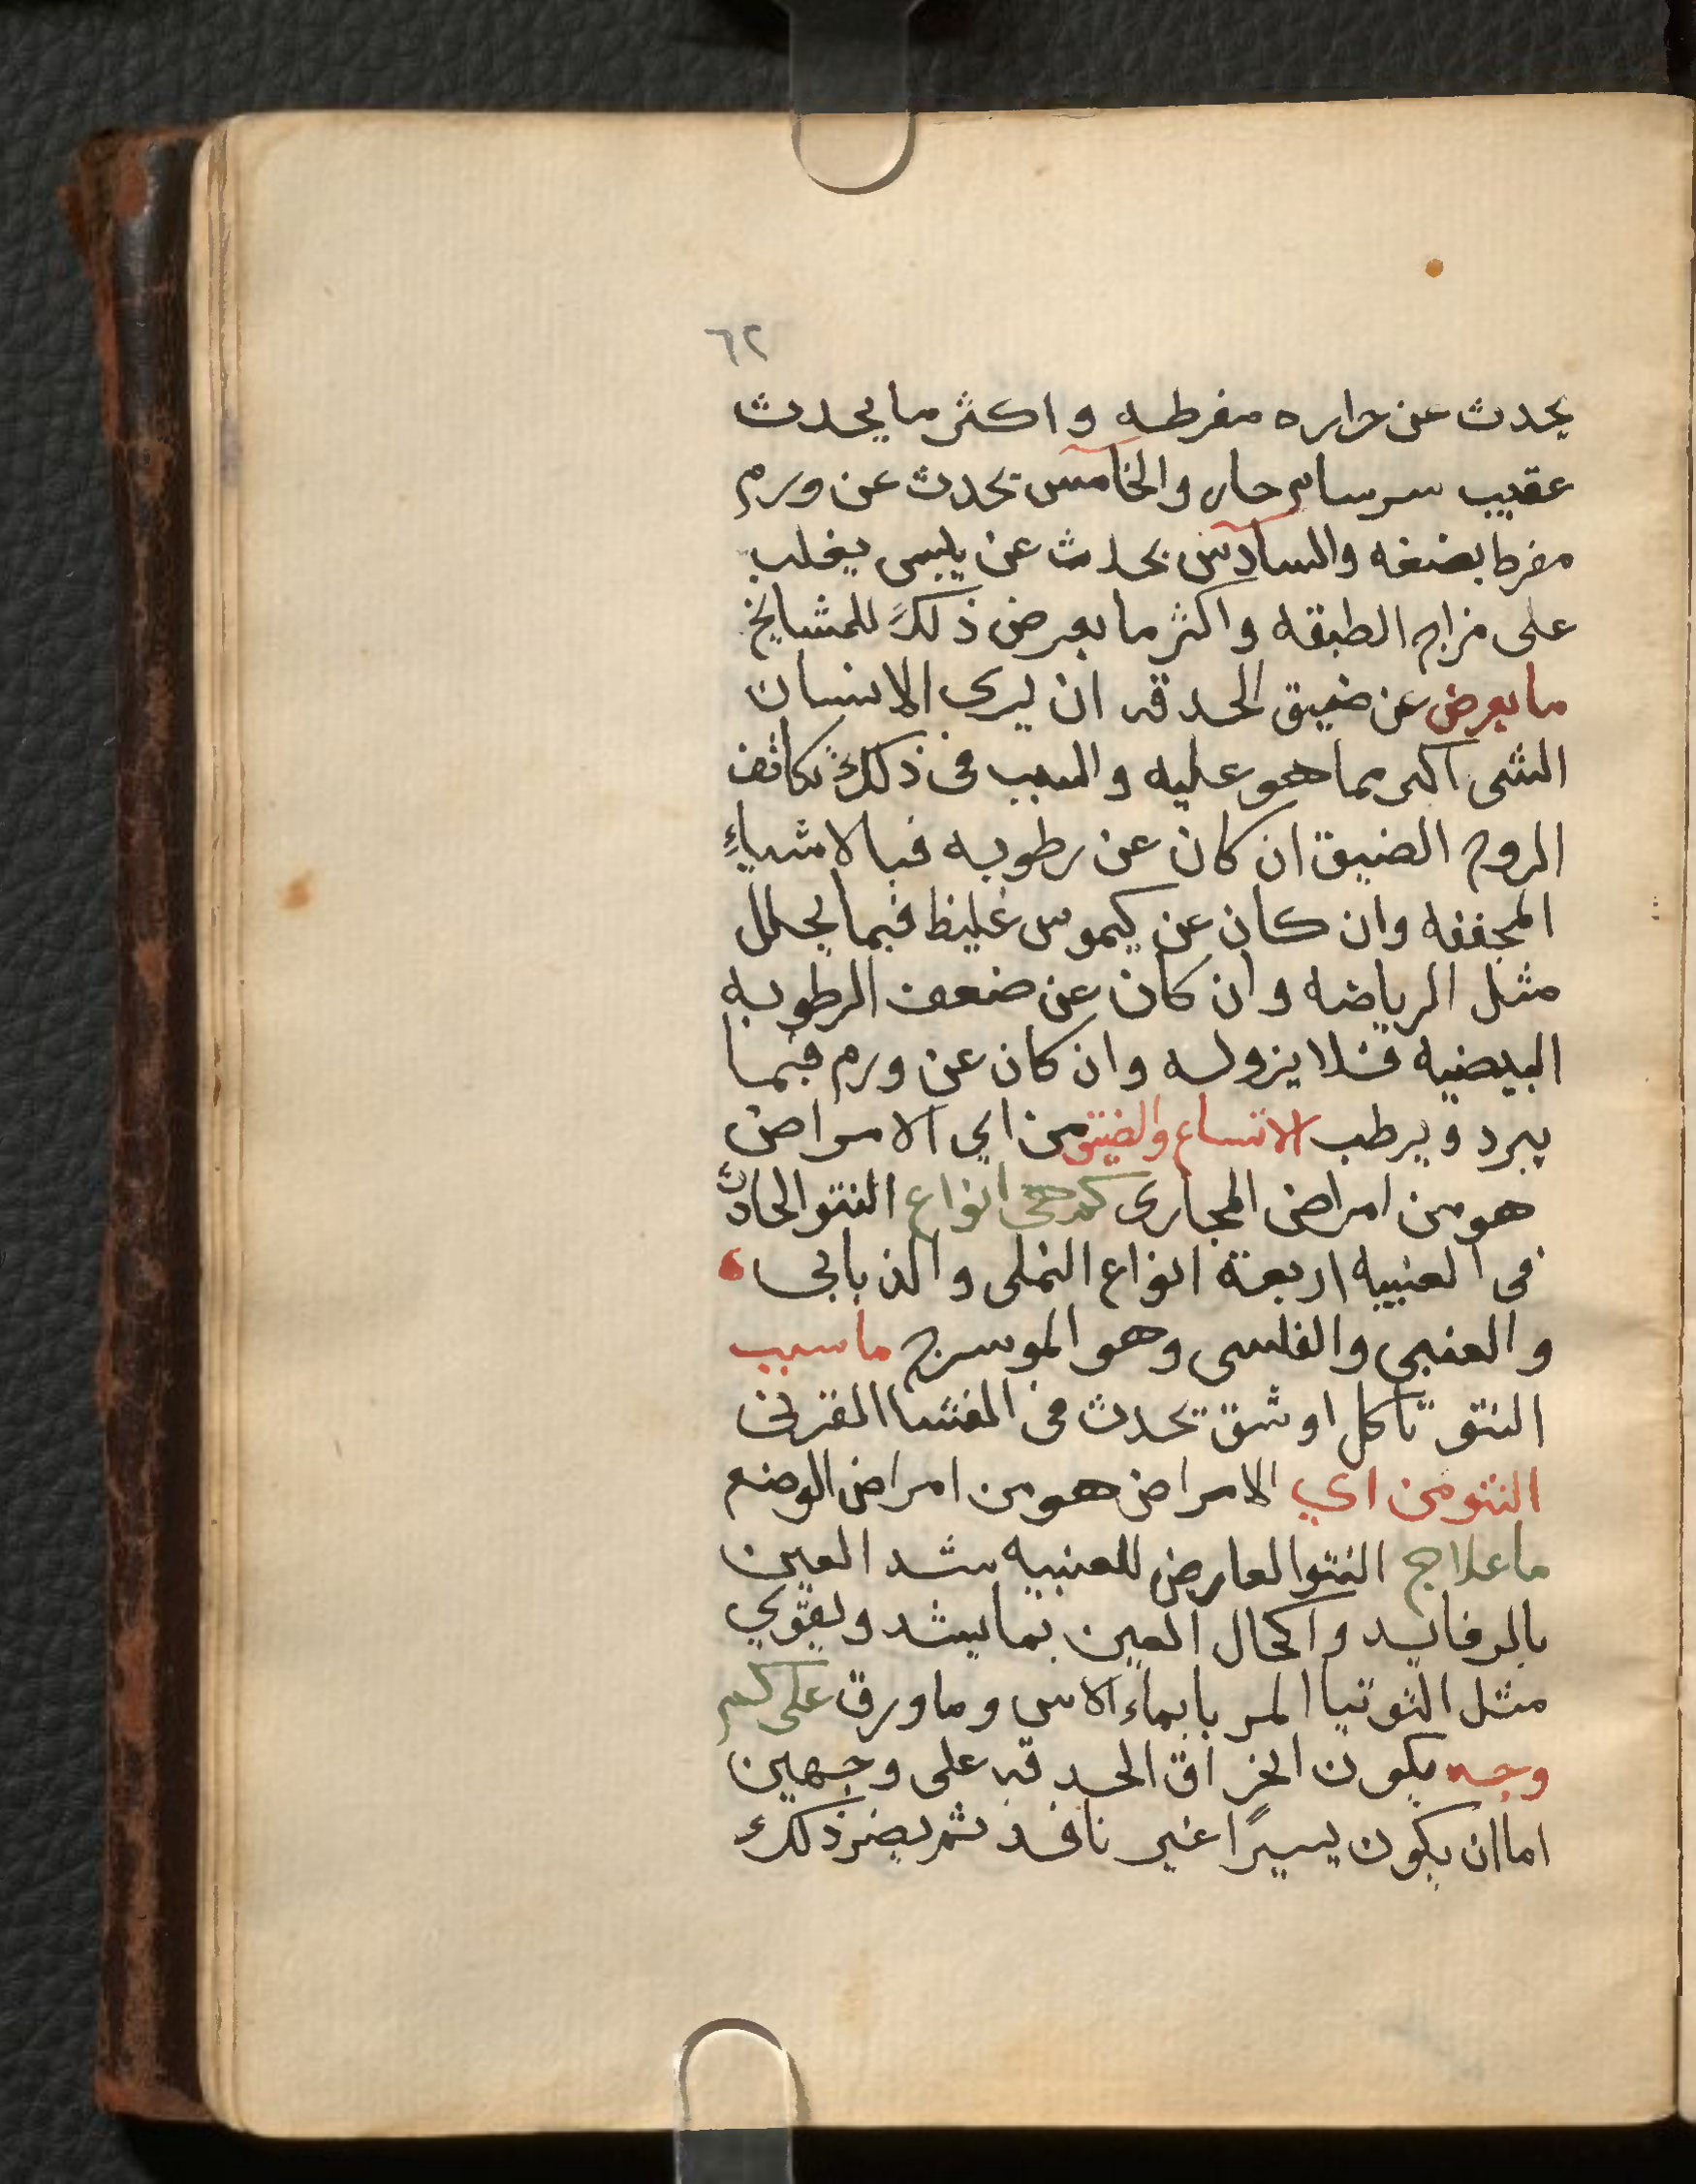 ٦٢
يحدث عن حراره مفرطه واكثر ما يحدث
عقيب سرسام حار والخامس تحدث عن ورم
مفرط بضغفه والسادس بحدث عن يبس يغلب
على مزاج الطبقه واكثر ما يعرض ذلك للمشايخ
ما يعرض عن ضيق الحدقه ان يرى الانسان
الشى اكبر مما هو عليه والسبب فى ذلك تكاثف
الروح الضيق ان كان عن رطوبه فبالاشياء
المجففه وان كان عن كيموس غليظ فبما يحلل
مثل الرياضه وان كان عن ضعف الرطوبه
البيضيه فلا يزول وان كان عن ورم فبما
يبرد ويرطب الاتساع والضيق من اي الامراض
هو من امراض المجارى كم هي انواع النتو الحادث
فى العنبيه اربعة انواع النملى والذبابى
والعنبي والفلسى وهو الموسرج ما سبب
النتو تاكل او شق تحدث فى الغشا القرنى
النتو من اي الامراض هو من امراض الوضع
ما علاج النتو العارض للعنبيه شد العين
بالرفايد واكحال العين بما يشد ويقوي
مثل التوتيا المربا بماء الاس وما ورق على كم
وجه يكون انخراق الحدقه على وجهين
اما ان يكون يسيرًا غير نافذ ثم يضر ذلك